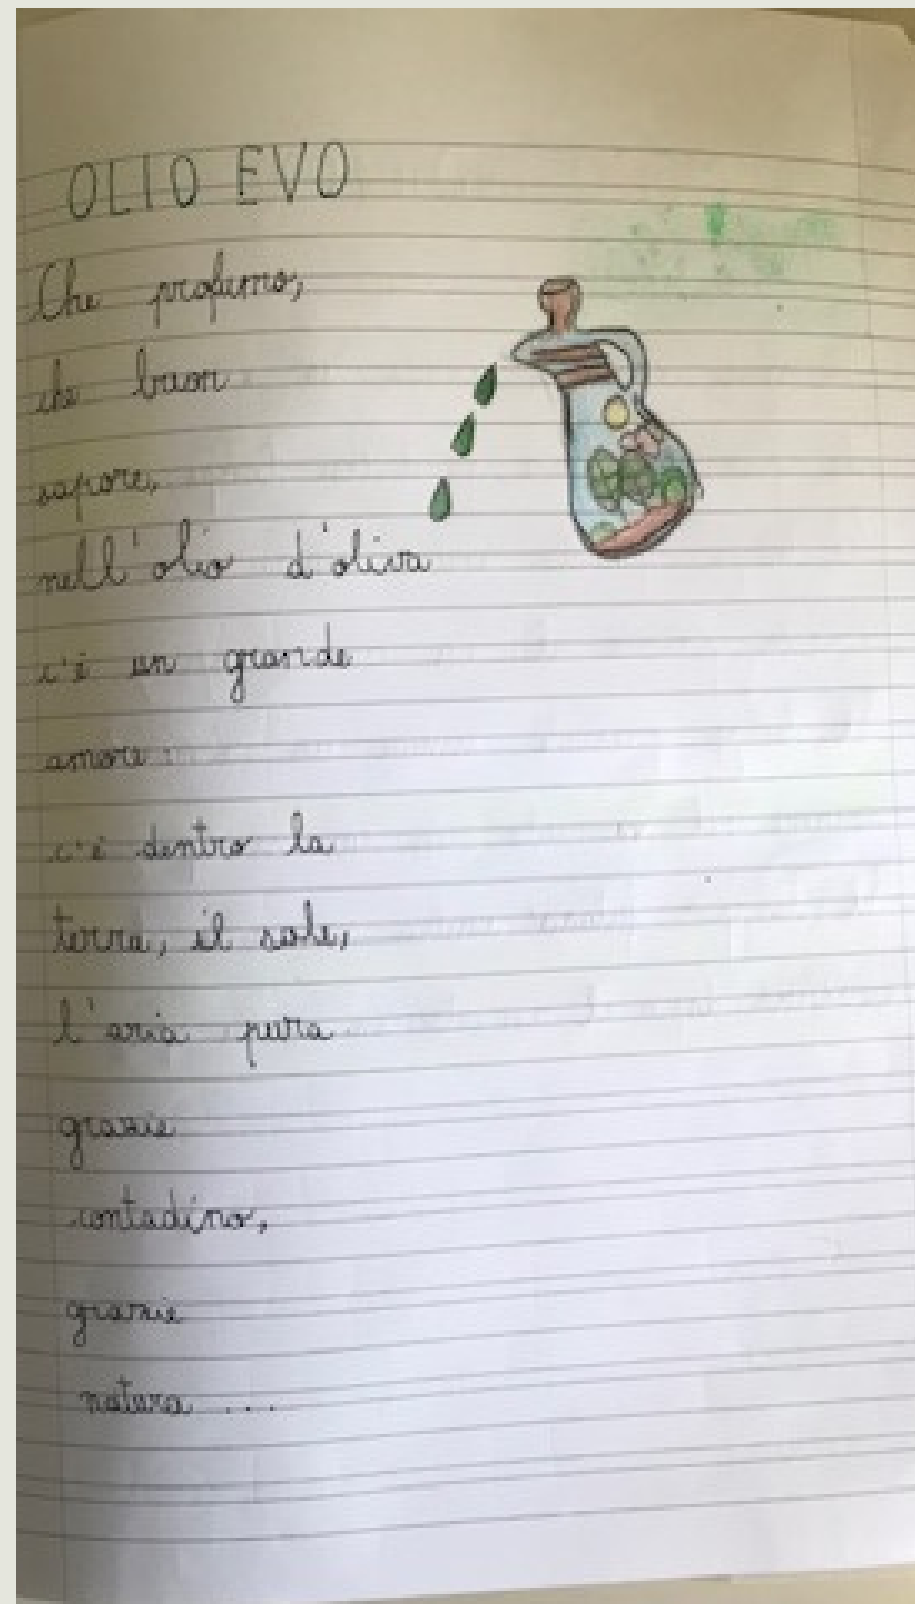 OLIO EVO
Che profumo,
che buon
sapore,
nell'olio d'oliva
c'è un grande
amore
c'è dentro la
terra, il sole,
l'aria pura
grazie
contadino,
grazie
natura ...